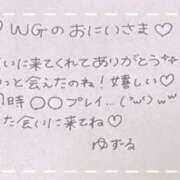 ♡WGのおにいさま♡
いに来てくれてありがとうな
っと会えたのね！嬉しい♡
時〇〇プレイ…(//ω//)w
た会いに来てね♡
ゆずる